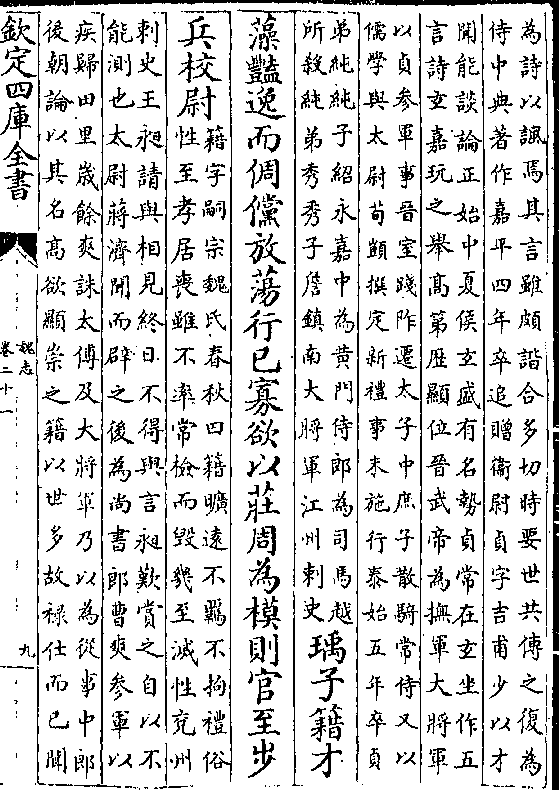 為詩以諷焉其言雖頗諧合多切時要世共傳之復為
侍中典著作嘉平四年卒追贈衛尉貞字吉甫少以才
聞能談論正始中夏侯玄盛有名勢貞常在玄坐作五
言詩玄嘉玩之舉高第歴顯位晉武帝為撫軍大將軍
以貞參軍事晉室踐阼遷太子中庶子散騎常侍又以
儒學與太尉荀顗撰定新禮事未施行泰始五年卒貞
弟純純子紹永嘉中為黄門侍郎為司馬越
所殺純弟秀秀子詹鎮南大將軍江州刺史
瑀子籍才
藻豔逸而倜儻放蕩行已寡欲以莊周為模則官至步
兵校尉
籍字嗣宗魏氏春秋曰籍曠逺不羈不拘禮俗
性至孝居喪雖不率常檢而毁㡬至滅性兖州
刺史王昶請與相見終日不得與言昶歎賞之自以不
能測也太尉蔣濟聞而辟之後為尚書郎曹爽參軍以
疾歸田里歲餘爽誅太傅及大將軍乃以為從事中郎
後朝論以其名髙欲顯崇之籍以世多故禄仕而已聞
欽定四庫全書
魏志
卷二十一
九